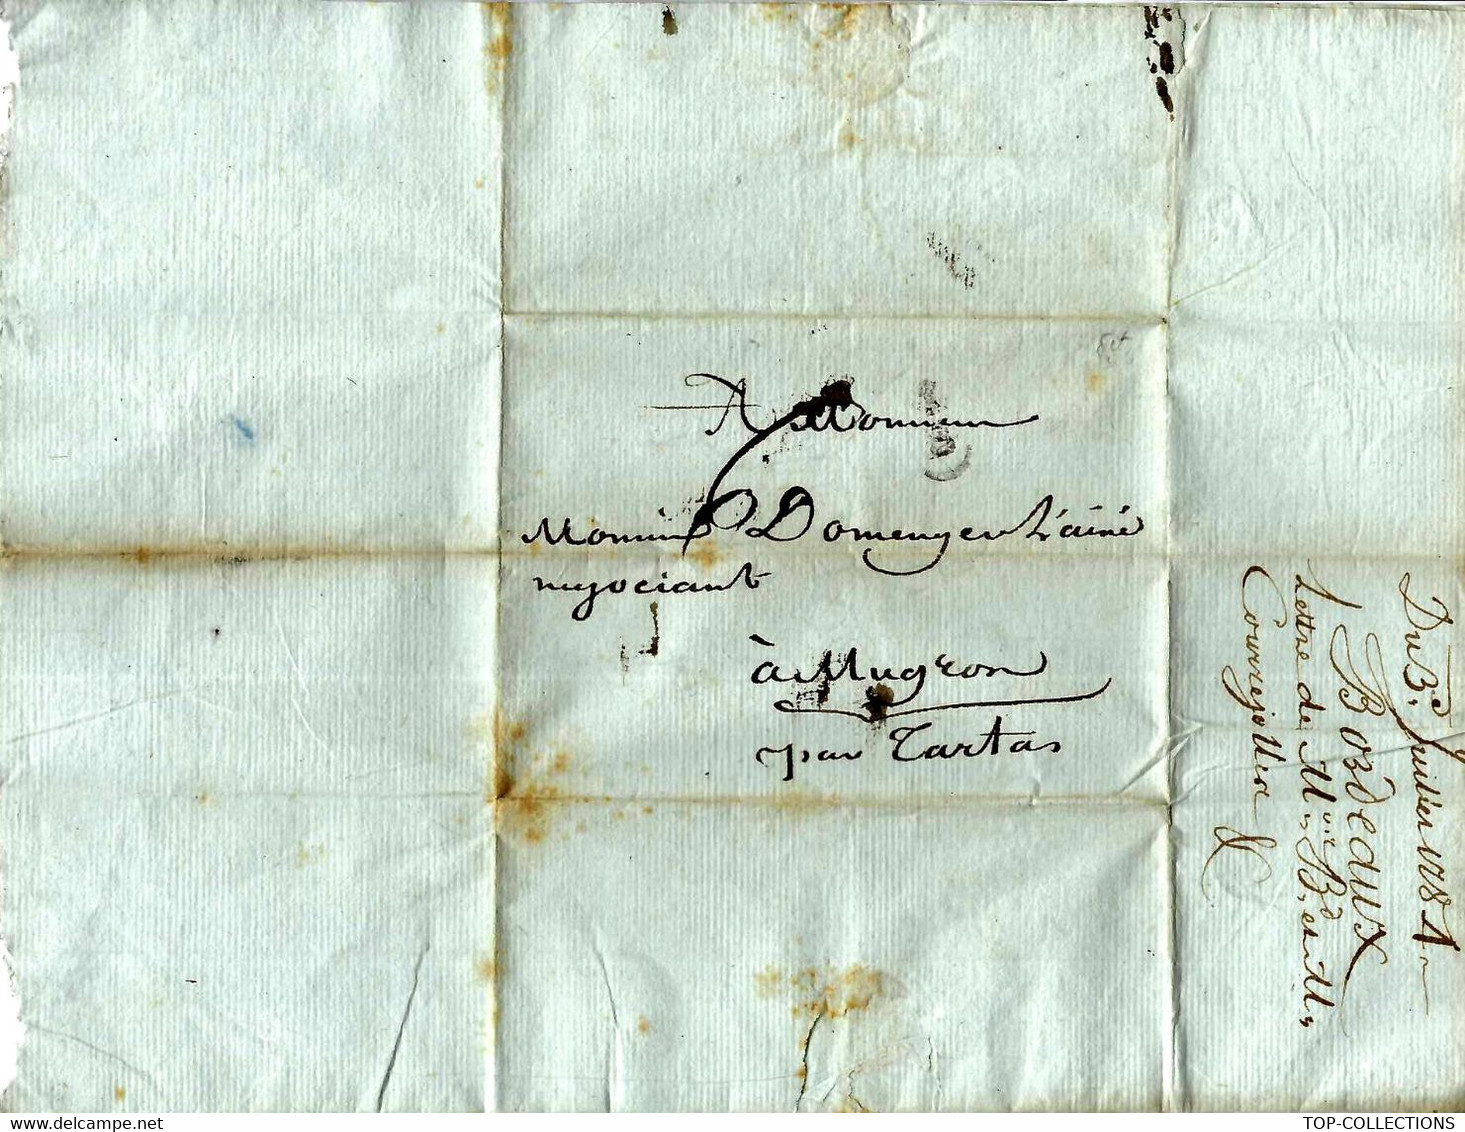 A Monsieur
Monsieur Domenger L'ainé
negociant
à Mugron
par Tartas
Du 3.e Juillet 1784
Bordeaux
Lettre de M.
Courrejolles
TOP-COLLECTIONS